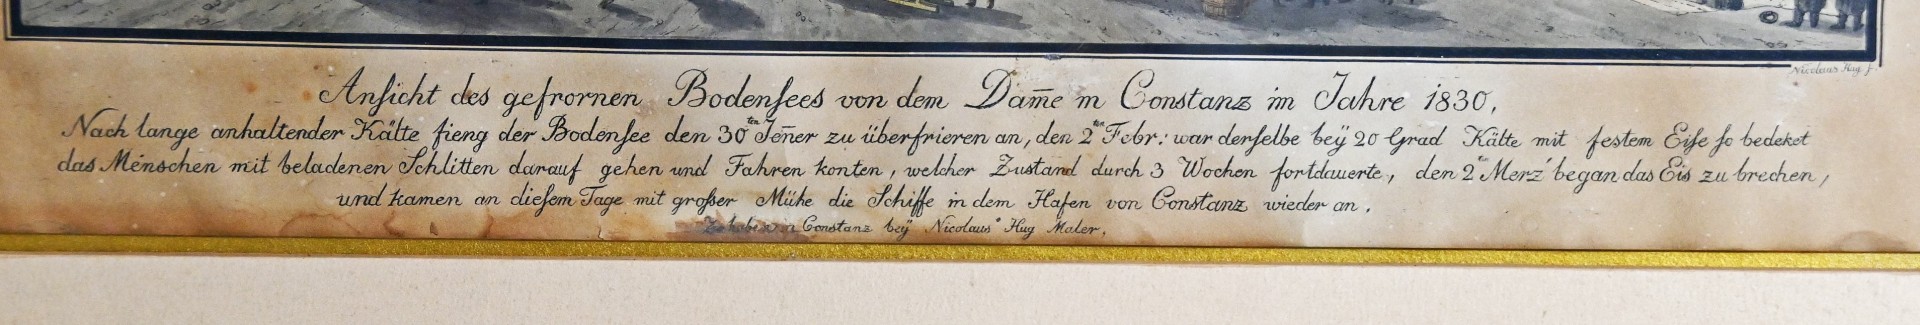 Nicolaus Hug f.
Anſicht des gefrornen Bodenſees von dem Dam̅e in Conſtanz im Jahre 1830,
Nach lange anhaltender Kälte fieng der Bodenſee den 30ten Jen̅er zu überfrieren an, den 2ten Febr: war derſelbe beÿ 20 Grad Kälte mit feſtem Eiſe ſo bedeket
das Menschen mit beladenen Schlitten darauf gehen und Fahren konten, welcher Zustand durch 3 Wochen fortdauerte, den 2ten Merz began das Eis zu brechen,
und kamen an dieſem Tage mit großer Mühe die Schiffe in dem Hafen von Constanz wieder an.
Zu haben in Constanz beÿ Nicolaus Hug Maler.